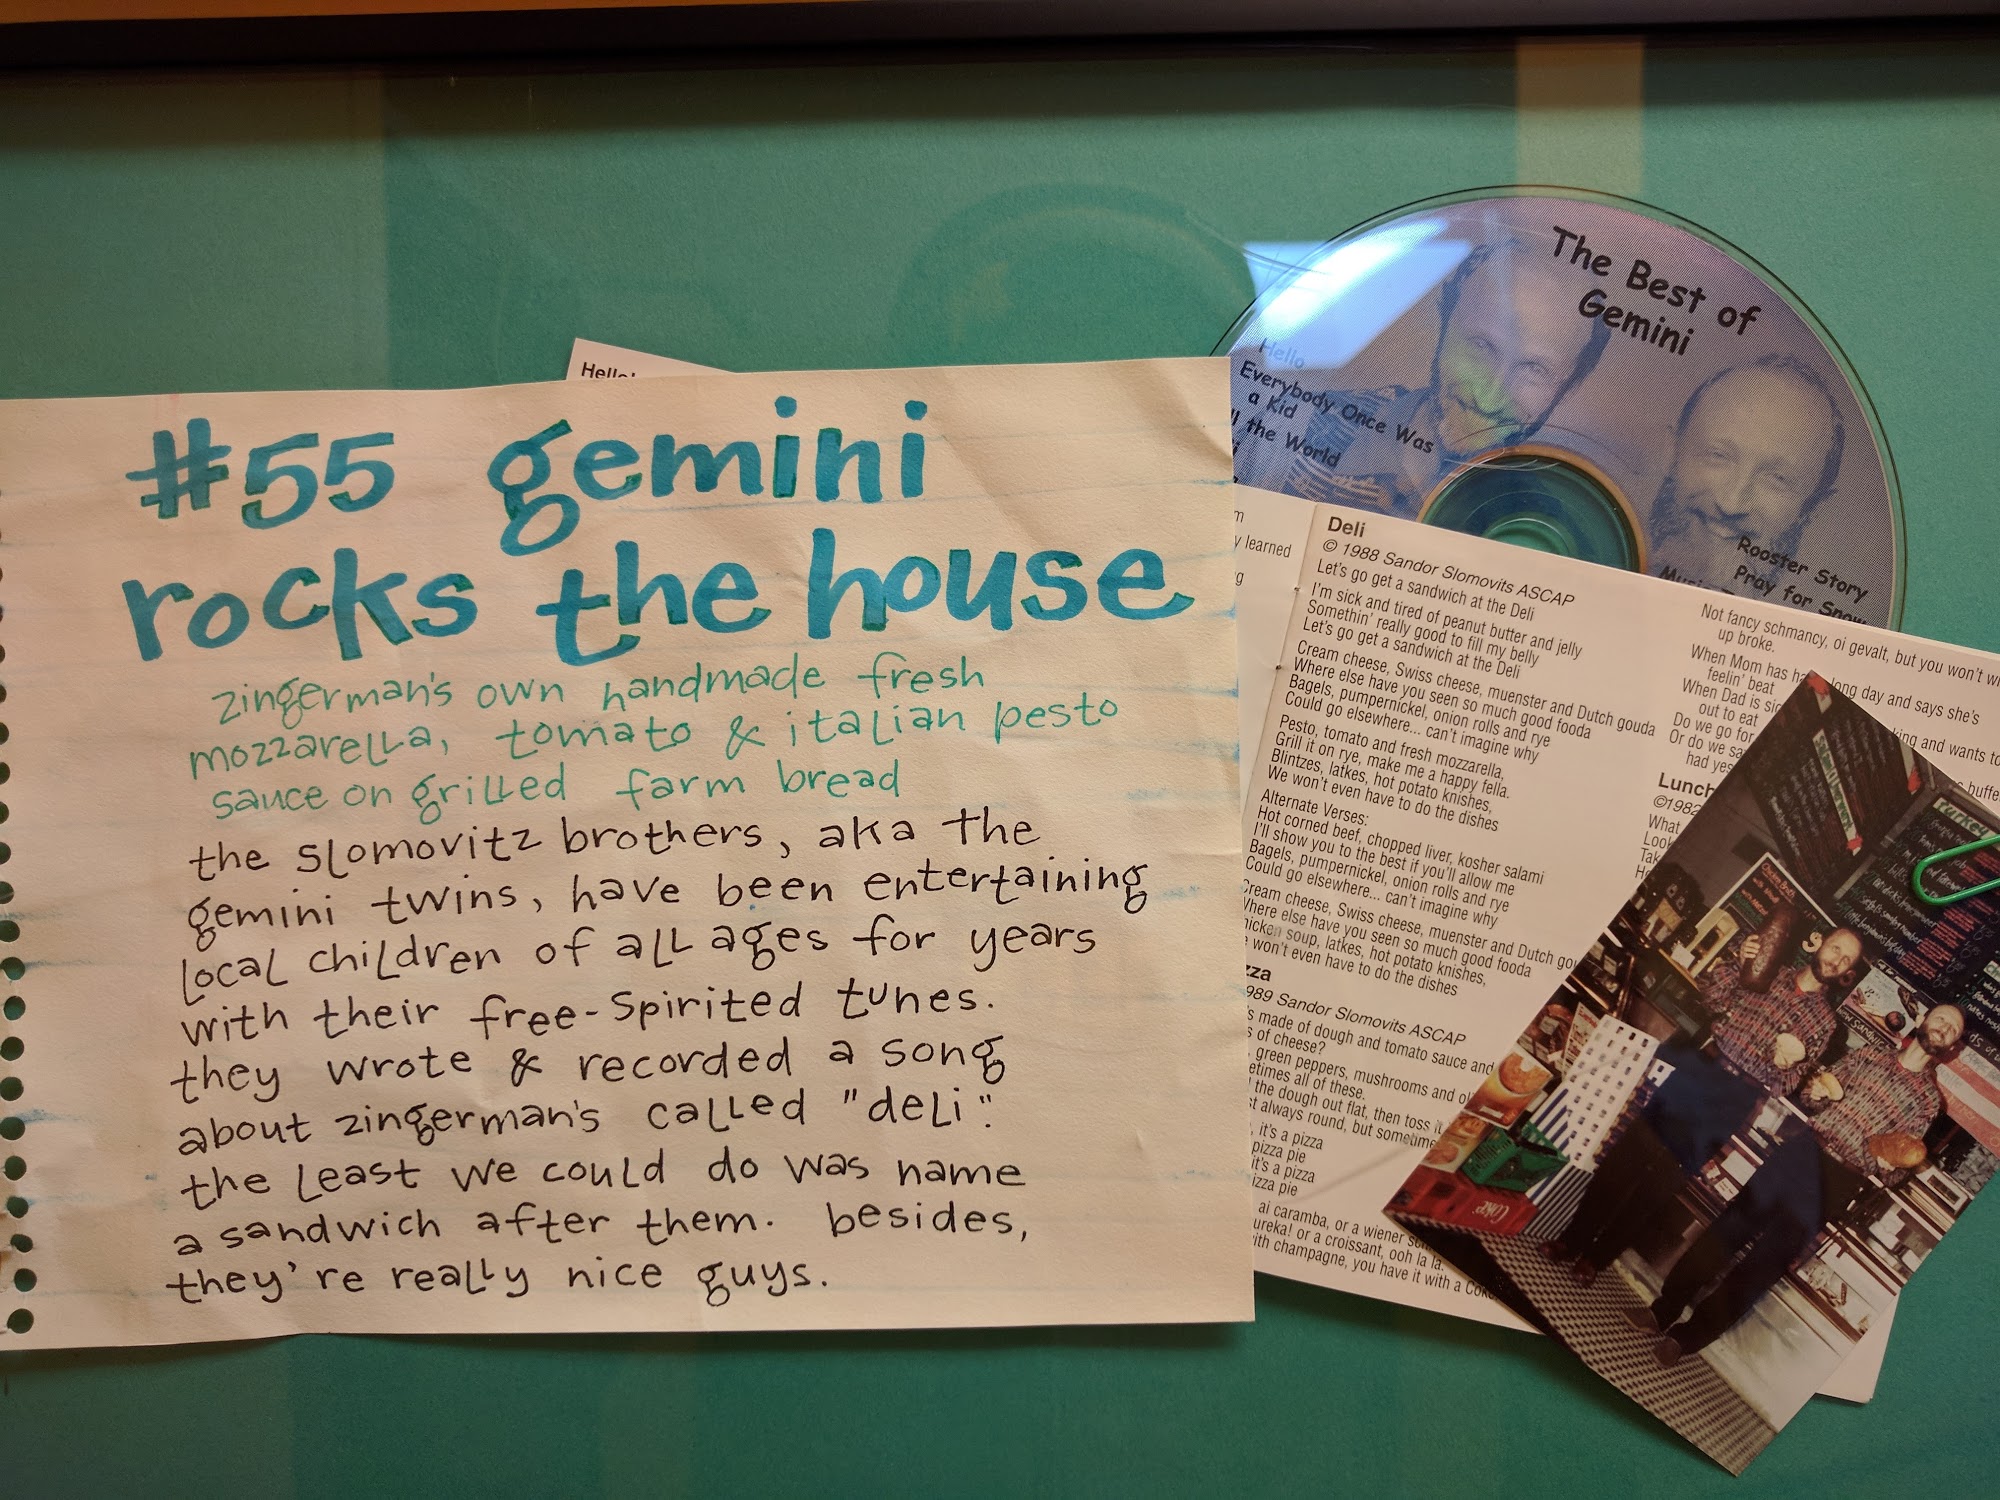 #55 gemini
rocks the house
zingerman's own handmade fresh
mozzarella, tomato & italian pesto
sauce on grilled farm bread
the slomovitz brothers, aka the
gemini twins, have been entertaining
local children of all ages for years
with their free-spirited tunes.
they wrote & recorded a song
about zingerman's called "deli".
the least we could do was name
a sandwich after them. besides,
they're really nice guys.
Hello!
The Best of
Gemini
Hello
Everybody Once Was
a Kid
the World
Rooster Story
Pray for Snow
learned
Deli
© 1988 Sandor Slomovits ASCAP
Let's go get a sandwich at the Deli
I'm sick and tired of peanut butter and jelly
Somethin' really good to fill my belly
Let's go get a sandwich at the Deli
Cream cheese, Swiss cheese, muenster and Dutch gouda
Where else have you seen so much good fooda
Bagels, pumpernickel, onion rolls and rye
Could go elsewhere... can't imagine why
Pesto, tomato and fresh mozzarella,
Grill it on rye, make me a happy fella.
Blintzes, latkes, hot potato knishes,
We won't even have to do the dishes
Alternate Verses:
Hot corned beef, chopped liver, kosher salami
I'll show you to the best if you'll allow me
Bagels, pumpernickel, onion rolls and rye
Could go elsewhere... can't imagine why
Cream cheese, Swiss cheese, muenster and Dutch
Where else have you seen so much good fooda
soup, latkes, hot potato knishes,
won't even have to do the dishes
Sandor Slomovits ASCAP
made of dough and tomato sauce and
of cheese?
green peppers, mushrooms and
all of these.
the dough out flat, then toss it
always round, but
it's a pizza
pizza pie
it's a pizza
pizza pie
ai caramba, or a wiener
or a croissant, ooh la la.
with champagne, you have it with a Coke
Not fancy schmancy, oi gevalt, but you won't
up broke.
When Mom has long day and says she's
feelin' beat
When Dad is and wants to
out to eat
Do we go for
Or do we
had
Lunch
©1982
What
Look
Coke